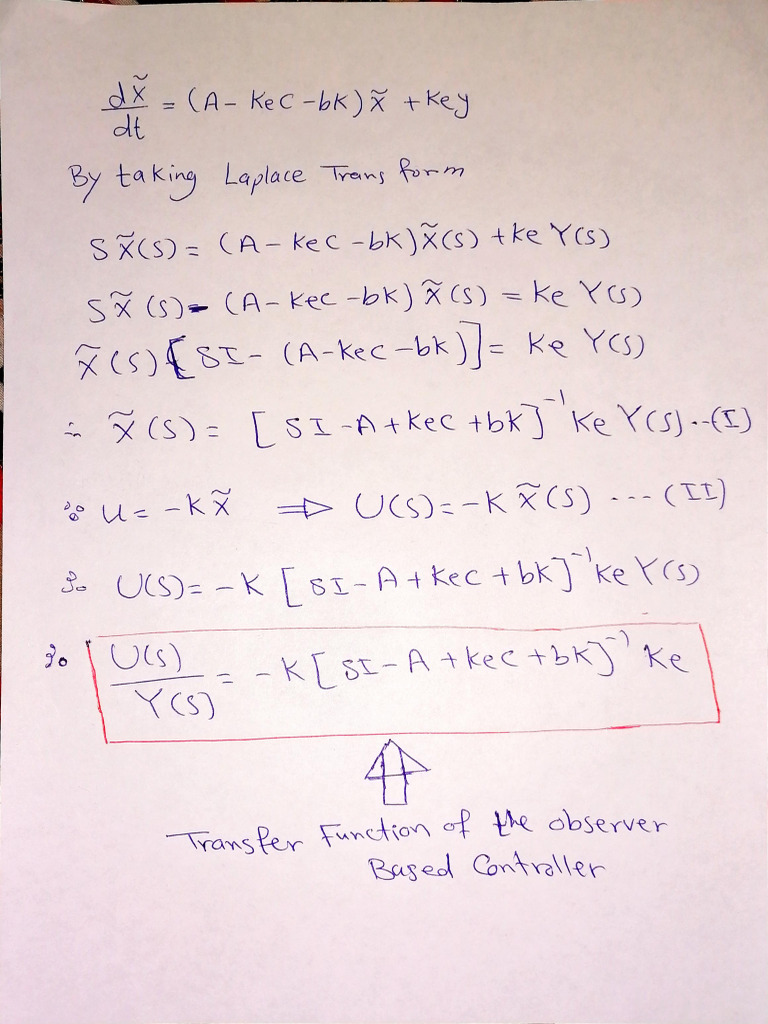 dx̃/dt = (A - KeC - bK) x̃ + Key
By taking Laplace Transform
S X̃(S) = (A - KeC - bK) X̃(S) + Ke Y(S)
S X̃(S) - (A - KeC - bK) X̃(S) = Ke Y(S)
X̃(S) [SI - (A - KeC - bK)] = Ke Y(S)
∴ X̃(S) = [SI - A + KeC + bK]⁻¹ Ke Y(S) --(I)
∵ U = -K x̃ ⟹ U(S) = -K X̃(S) --- (II)
∴ U(S) = -K [SI - A + KeC + bK]⁻¹ Ke Y(S)
∴ U(S)/Y(S) = -K [SI - A + KeC + bK]⁻¹ Ke
Transfer Function of the observer
Based Controller